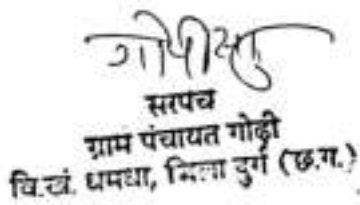 सरपंच
ग्राम पंचायत गोढ़ी
वि.खं. धमधा, जिला दुर्ग (छ.ग.)